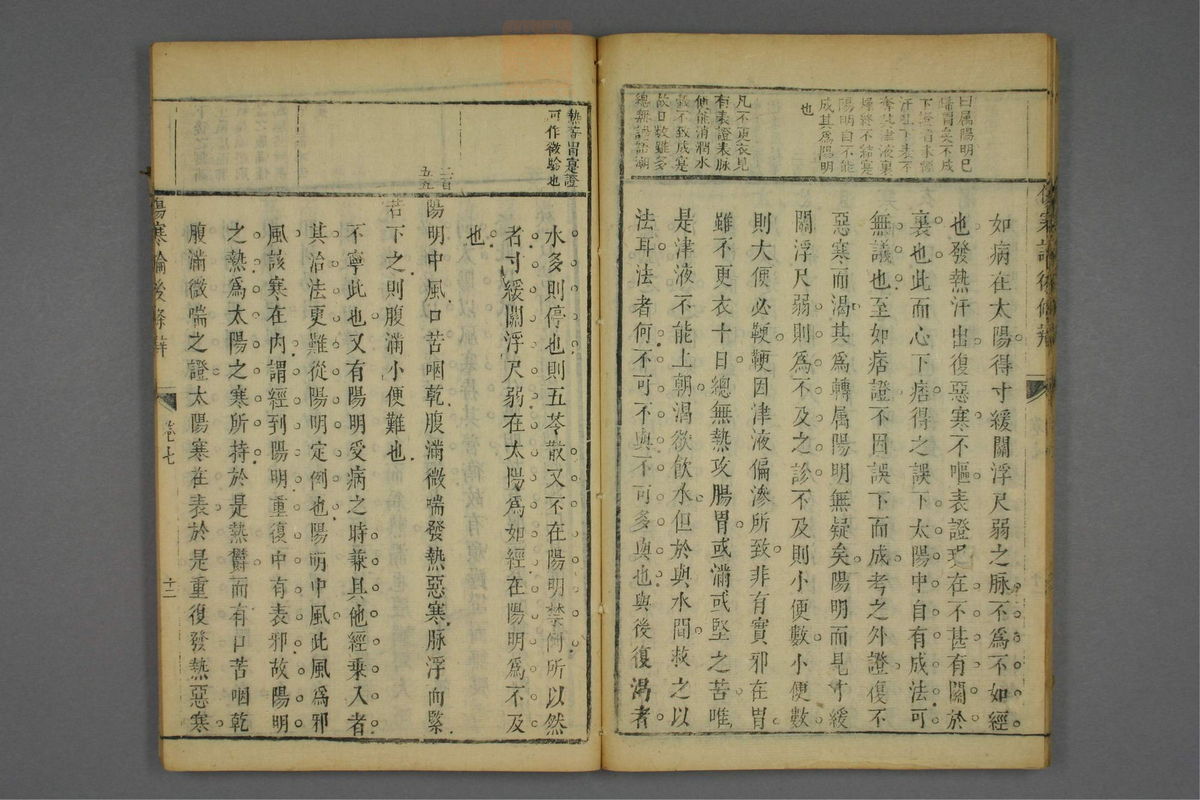 曰属陽明已
歸胃矣不成
下證者未經
汗吐下表不
奪其津液裏
歸終不結寔
陽明自不能
成其為陽明
也
凡不更衣見
有表證表脉
便能消潤水
穀不致成寔
故日數雖多
總無譫語潮
如病在太陽得寸緩關浮尺弱之脉不為不如經
也發熱汗出復惡寒不嘔表證現在不甚有關於
裏也此而心下痞得之誤下太陽中自有成法可
無議也至如痞證不因誤下而成考之外證復不
惡寒而渴其為轉属陽明無疑矣陽明而見寸緩
關浮尺弱則為不及之診不及則小便數小便數
則大便必鞕鞕因津液偏滲所致非有實邪在胃
雖不更衣十日總無熱攻腸胃或滿或堅之苦唯
是津液不能上朝渴欲飲水但於與水間救之以
法耳法者何不可不與不可多與也與後復渴者
熱等胃寔證
可作徵驗也
水多則停也則五苓散又不在陽明禁例所以然
者寸緩關浮尺弱在太陽為如經在陽明為不及
也
二百
五五
陽明中風口苦咽乾腹滿微喘發熱惡寒脉浮而緊
若下之則腹滿小便難也
不寧此也又有陽明受病之時兼其他經乘入者
其治法更難從陽明定例也陽明中風此風為邪
風該寒在内謂經到陽明重復中有表邪故陽明
之熱為太陽之寒所持於是熱鬱而有口苦咽乾
腹滿微喘之證太陽寒在表於是重復發熱惡寒
傷寒論後條辨
卷七
十二